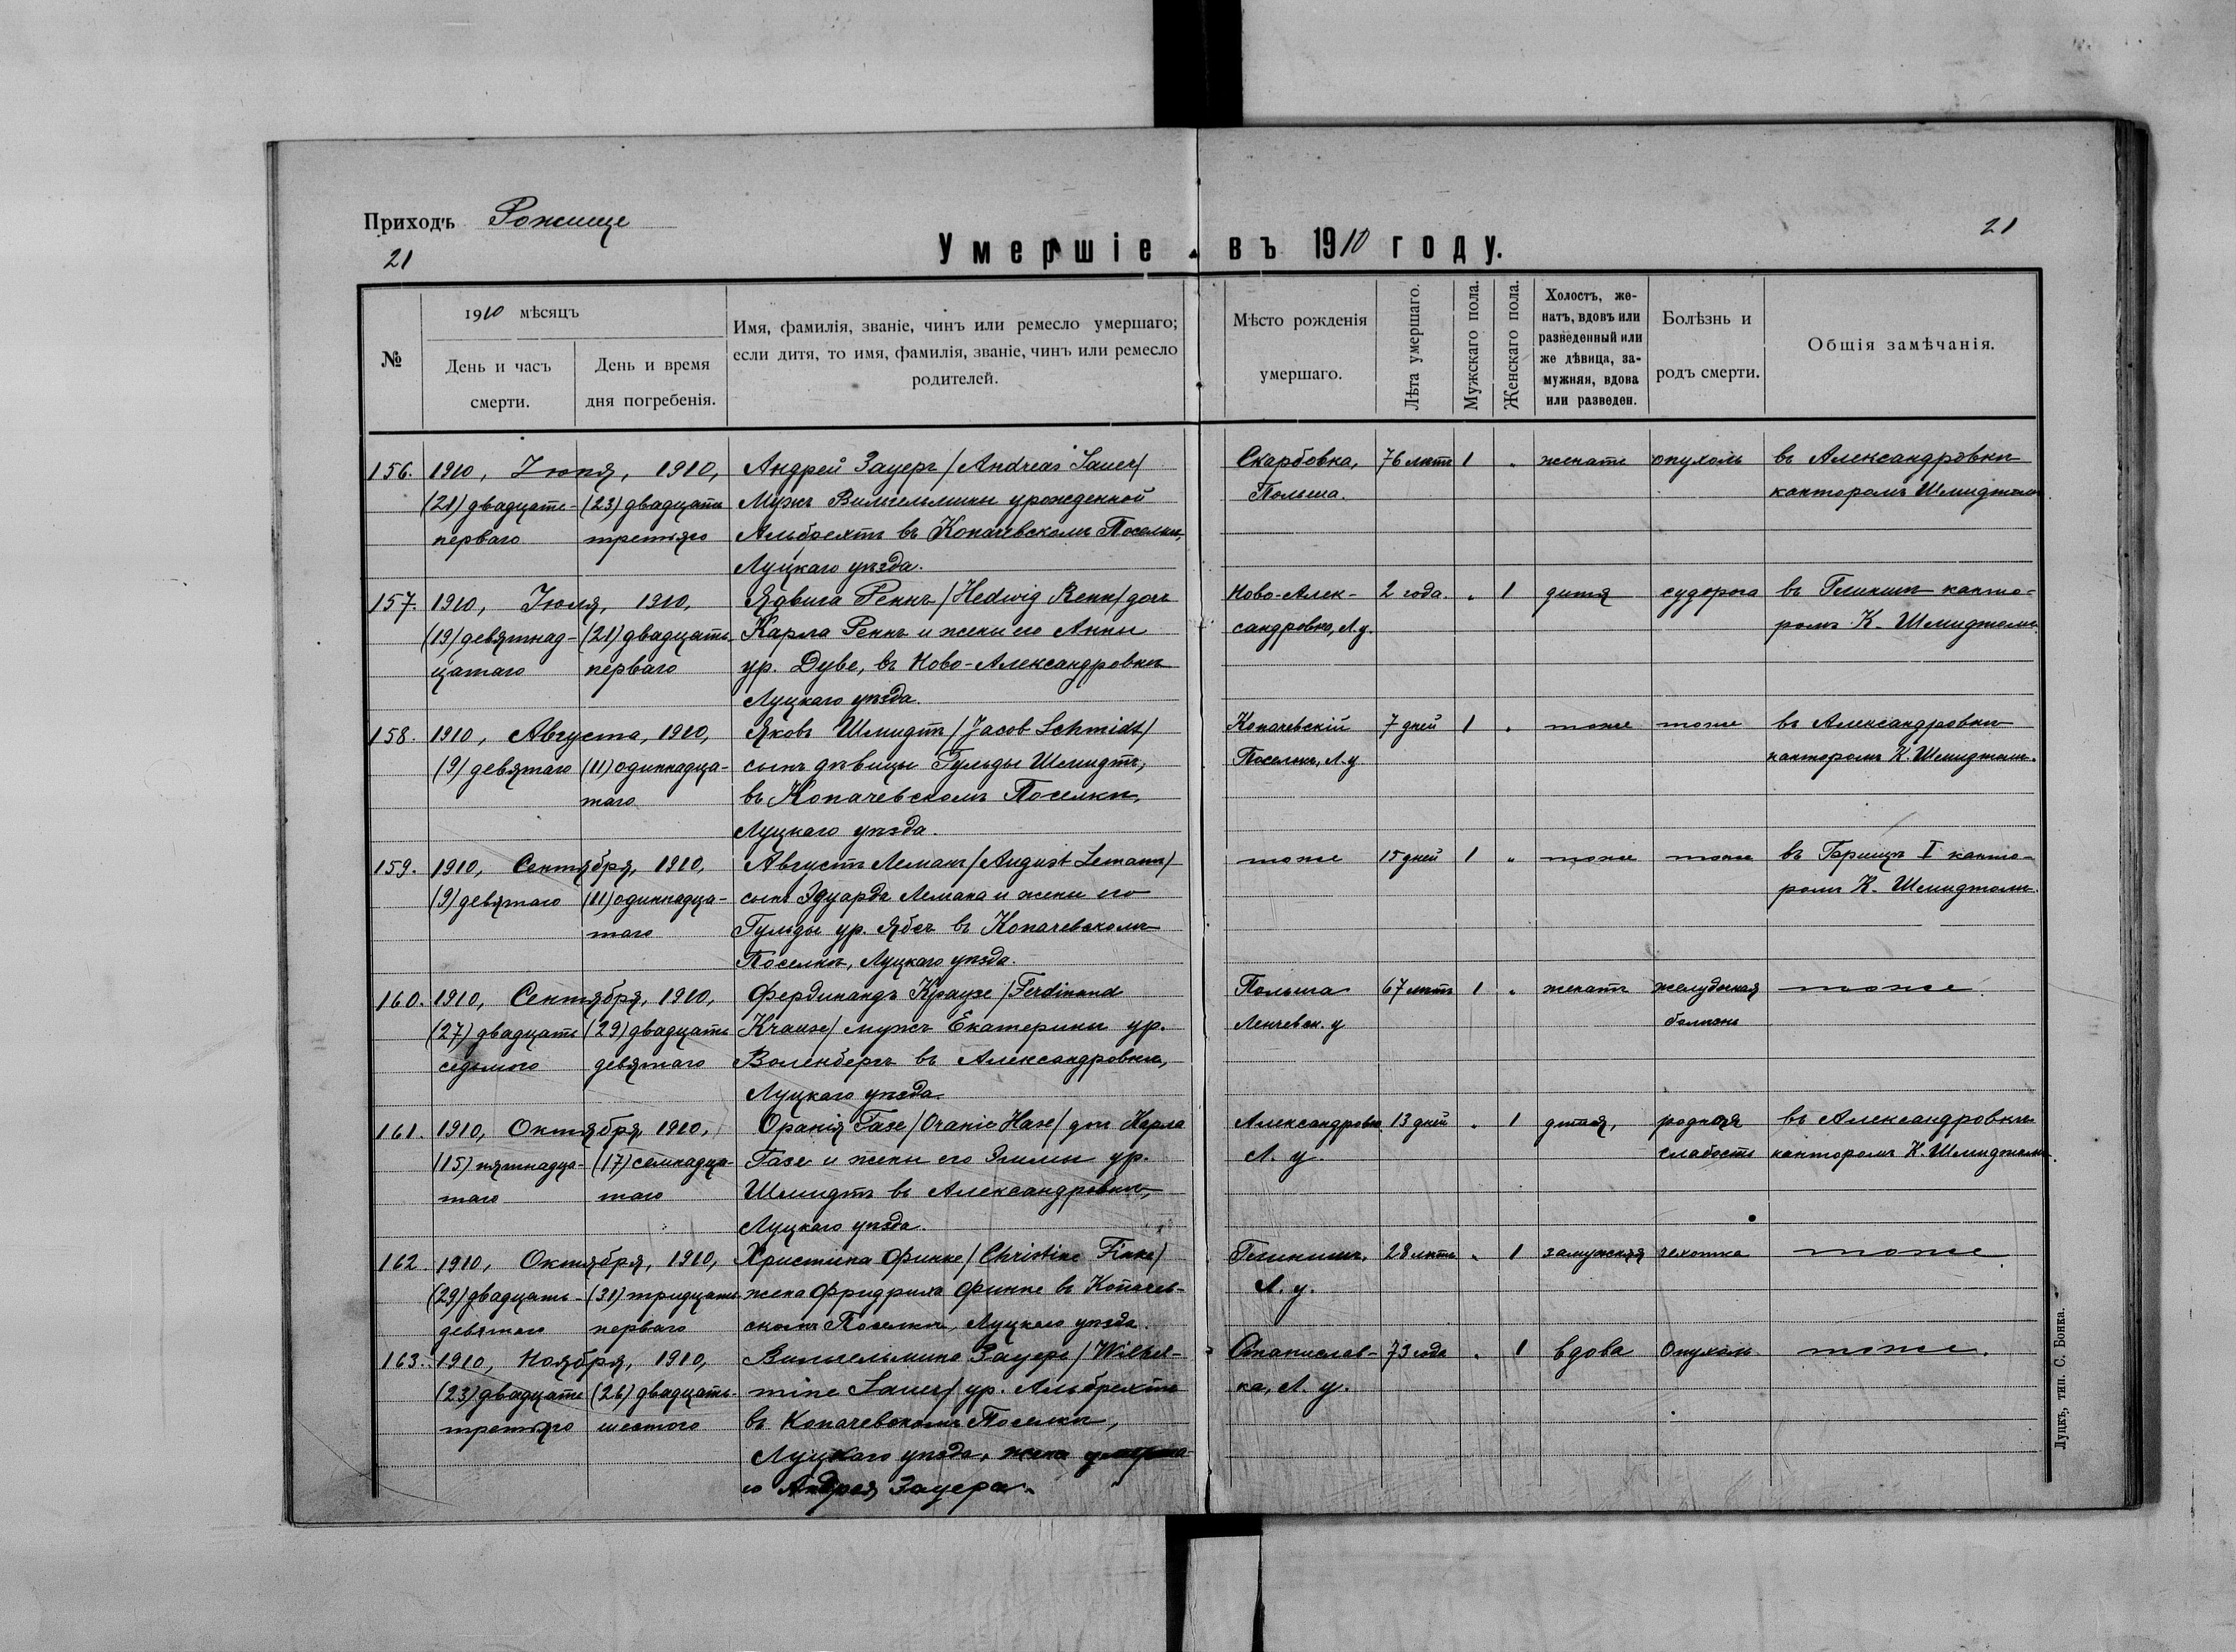 Приходъ Рожище
21
21
Умершіе въ 1910 году.
№
1910 мѣсяцъ
День и часъ смерти.
День и время дня погребенія.
Имя, фамилія, званіе, чинъ или ремесло умершаго;
если дитя, то имя, фамилія, званіе, чинъ или ремесло
родителей.
Мѣсто рожденія
умершаго.
Лѣта умершаго.
Мужскаго пола.
Женскаго пола.
Холостъ, же-
натъ, вдовъ или
разведенный или
же дѣвица, за-
мужняя, вдова
или разведен.
Болѣзнь и
родъ смерти.
Общія замѣчанія.
156. 1910, Іюня, 1910, Андрей Зауеръ /Andreas Sauer/ Скарбовка, 76 лѣтъ 1 " женатъ опухоль въ Александровкѣ
(21) двадцать- (23) двадцать Мужъ Вильгельмины урожденной Польша. канторомъ Шмидтомъ
перваго третьяго Альбрехтъ въ Копачевскомъ Поселкѣ,
Луцкаго уѣзда.
157. 1910, Іюля, 1910, Ядвига Реннъ /Hedwig Renn/ дочь Ново-Алек- 2 года. " 1 дитя судорога въ Глинищѣ канто-
(19) девятнад- (21) двадцать Карла Реннъ и жены его Анны сандровка, Л.у. ромъ К. Шмидтомъ.
цатаго перваго ур. Дубе, въ Ново-Александровкѣ
Луцкаго уѣзда.
158. 1910, Августа, 1910, Яковъ Шмидтъ /Jacob Schmidt/ Копачевскій 7 дней 1 " тоже тоже въ Александровкѣ
(9) девятаго (11) одиннадца- сынъ дѣвицы Гульды Шмидтъ, Поселокъ, Л.у канторомъ К. Шмидтомъ.
таго въ Копачевскомъ Поселкѣ,
Луцкаго уѣзда.
159. 1910, Сентября, 1910, Августъ Леманъ /August Lemann/ тоже 15 дней 1 " тоже тоже въ I канто-
(9) девятаго (11) одиннадца- сынъ Эдуарда Лемана и жены его ромъ К. Шмидтомъ.
таго Гульды ур. Ябсъ въ Копачевскомъ
Поселкѣ, Луцкаго уѣзда.
160. 1910, Сентября, 1910, Фердинандъ Краузе /Ferdinand Польша 67 лѣтъ 1 " женатъ желудочная тоже.
(27) двадцать (29) двадцать Krause/ мужъ Екатерины ур. Ленчевск. у болѣзнь
седьмого девятаго Воленбергъ въ Александровкѣ,
Луцкаго уѣзда
161. 1910, Октября, 1910, Оранія Газе /Oranie Hase/ дочь Карла Александровка 13 дней " 1 дитя, родная въ Александровкѣ
(15) пятнадца- (17) семнадца- Газе и жены его Эмилы ур. Л. у. слабость канторомъ К. Шмидтомъ.
таго таго Шмидтъ въ Александровкѣ,
Луцкаго уѣзда.
162. 1910, Октября, 1910, Христина Финке /Christine Finke/ Глинищъ, 28 лѣтъ " 1 замужняя чахотка тоже.
(29) двадцать- (31) тридцать жена Фридриха Финке въ Копачев- Л. у.
девятаго перваго скомъ Поселкѣ, Луцкаго уѣзда.
163. 1910, Ноября, 1910, Вильгельмина Зауеръ /Wilhel- Станислав- 73 года " 1 вдова Опухоль тоже.
(23) двадцать (26) двадцать- mine Sauer/ ур. Альбрехтъ ка, Л. у.
третьяго шестого въ Копачевскомъ Поселкѣ,
Луцкаго уѣзда, жена умерша-
го Андрея Зауера.
Луцкъ, тип. С. Бонка.